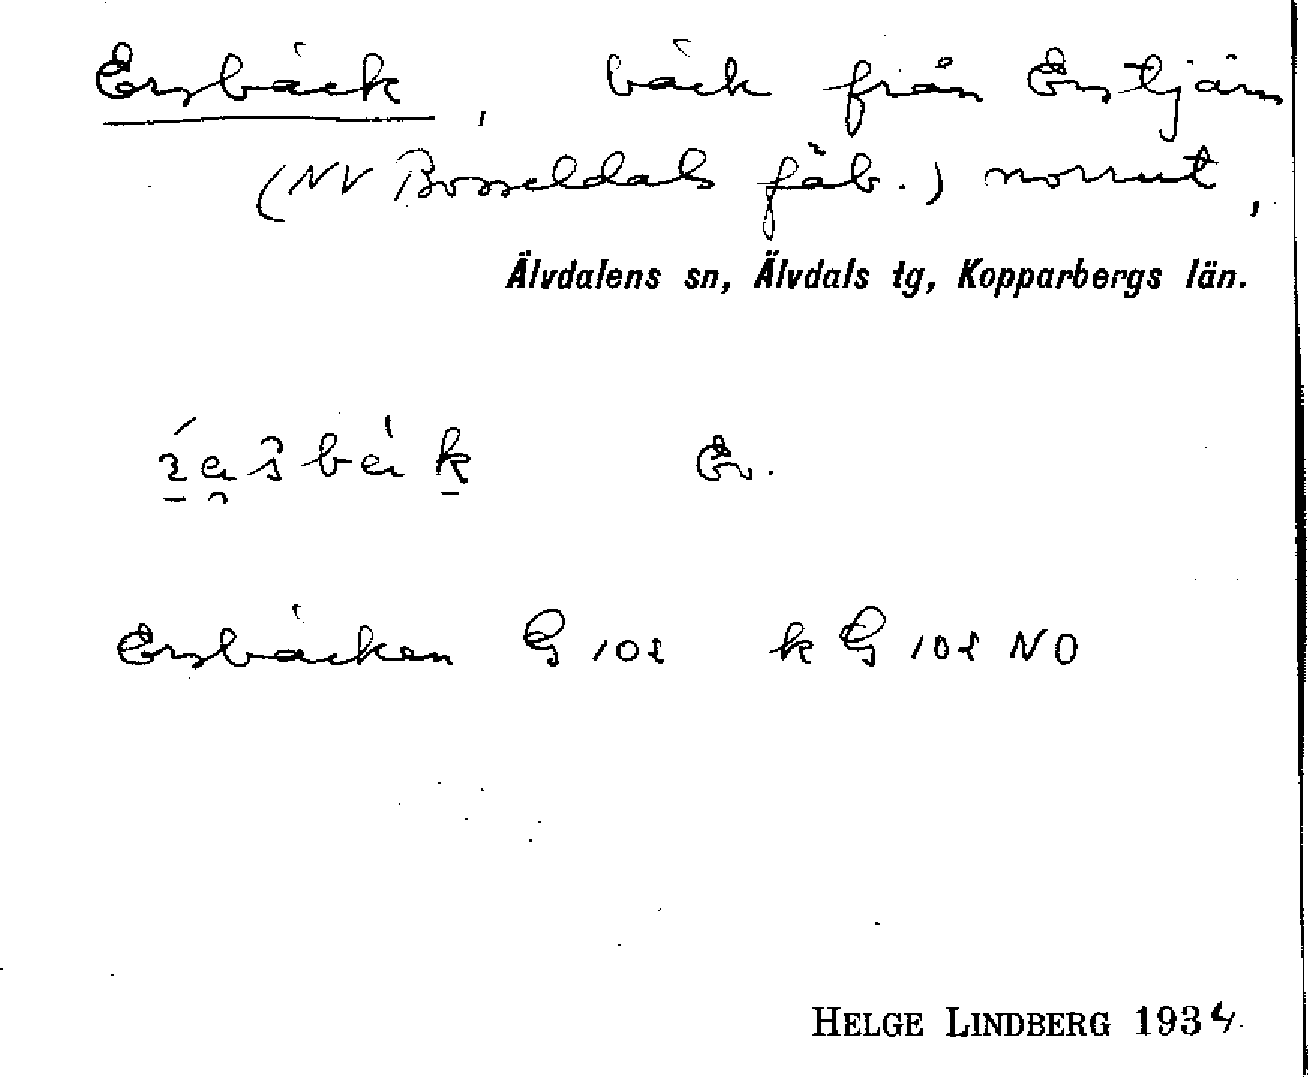 Ersbäck, bäck från Erstjärn
(NV Bosseldals fäb.) norrut,
Älvdalens sn, Älvdals tg, Kopparbergs län.
Er.
Ersbäcken G 102 k G 102 NO
HELGE LINDBERG 1934